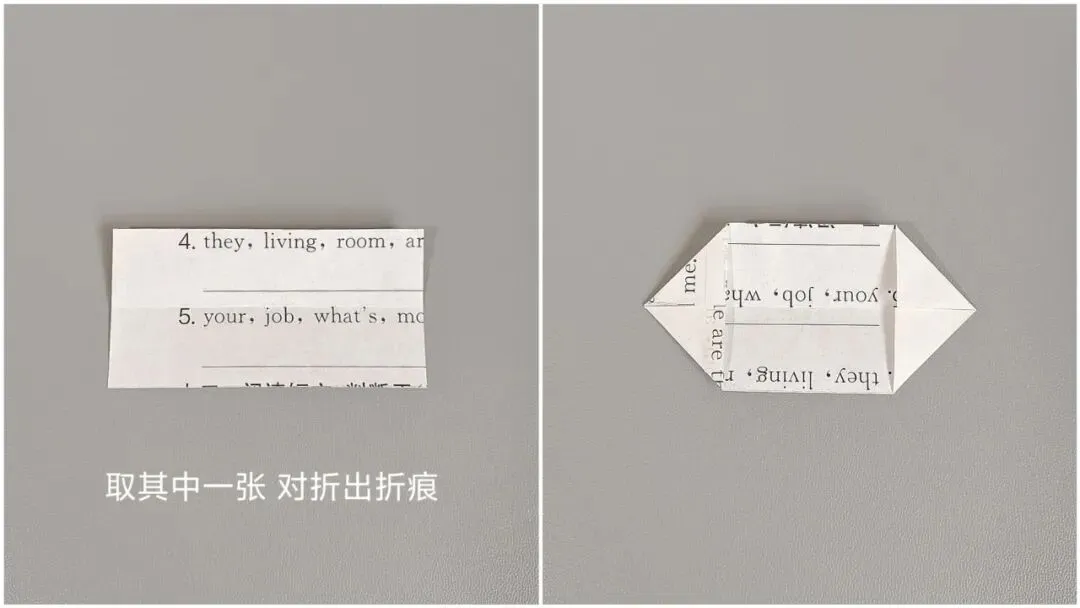 4. they, living, room, ar
5. your, job, what's, mo
取其中一张 对折出折痕
me.
your, job, wha
le are t
they, living, r